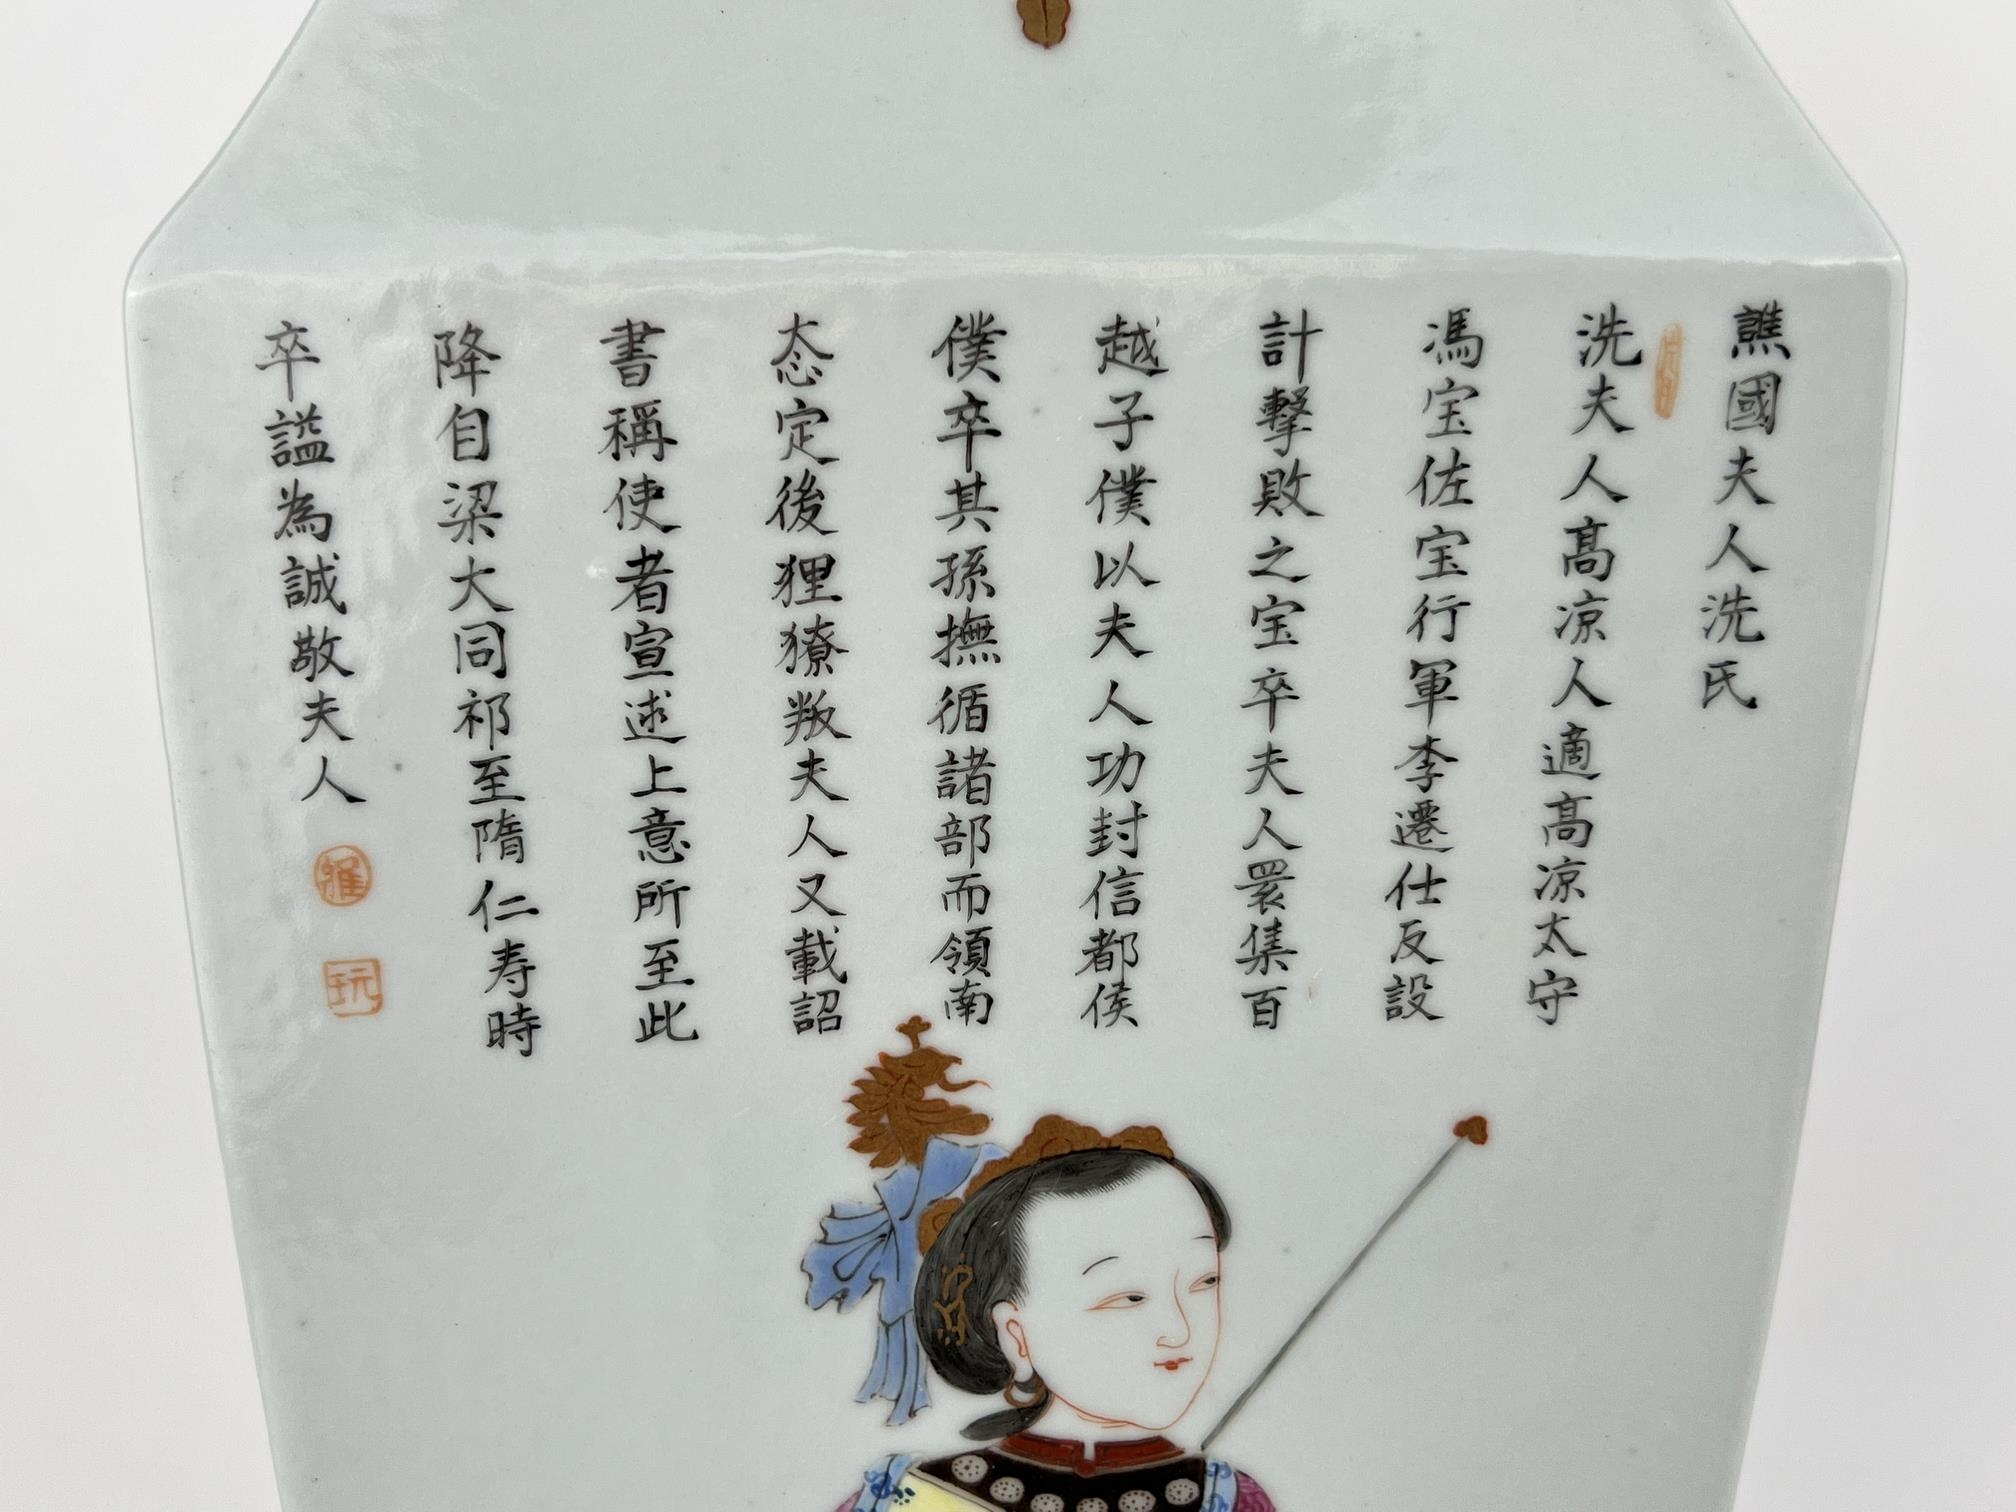 譙國夫人洗氏
洗夫人髙凉人適髙凉太守
馮宝佐宝行軍李遷仕反設
計擊敗之宝卒夫人睘集百
越子僕以夫人功封信都侯
僕卒其孫撫循諸部而領南
态定後狸獠叛夫人又載詔
書稱使者宣述上意所至此
降自梁大同祁至隋仁寿時
卒謚為誠敬夫人
雅
玩